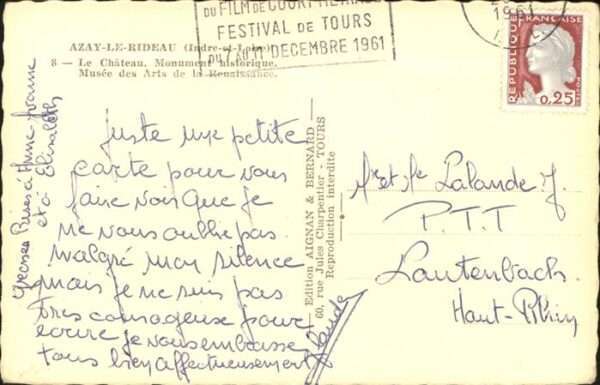 DU FILM DE COURT METRAGE
FESTIVAL de TOURS
DU 7 AU 11 DECEMBRE 1961
1961
REPUBLIQUE FRANÇAISE
0,25
AZAY-LE-RIDEAU (Indre-et-Loire)
8 - Le Château. Monument historique.
Musée des Arts de la Renaissance.
Juste une petite
carte pour vous
faire voir que je
ne vous oublie pas
malgré mon silence
mais je ne suis pas
très courageuse pour
écrire je vous embrasse
tous bien affectueusement
Grosses Bises à Anne-Yvonne
et à Elisabeth
Edition AIGNAN & BERNARD
60, rue Jules Charpentier - TOURS
Reproduction interdite
Mr et Me Lalande J.
P.T.T
Lautenbach
Haut-Rhin